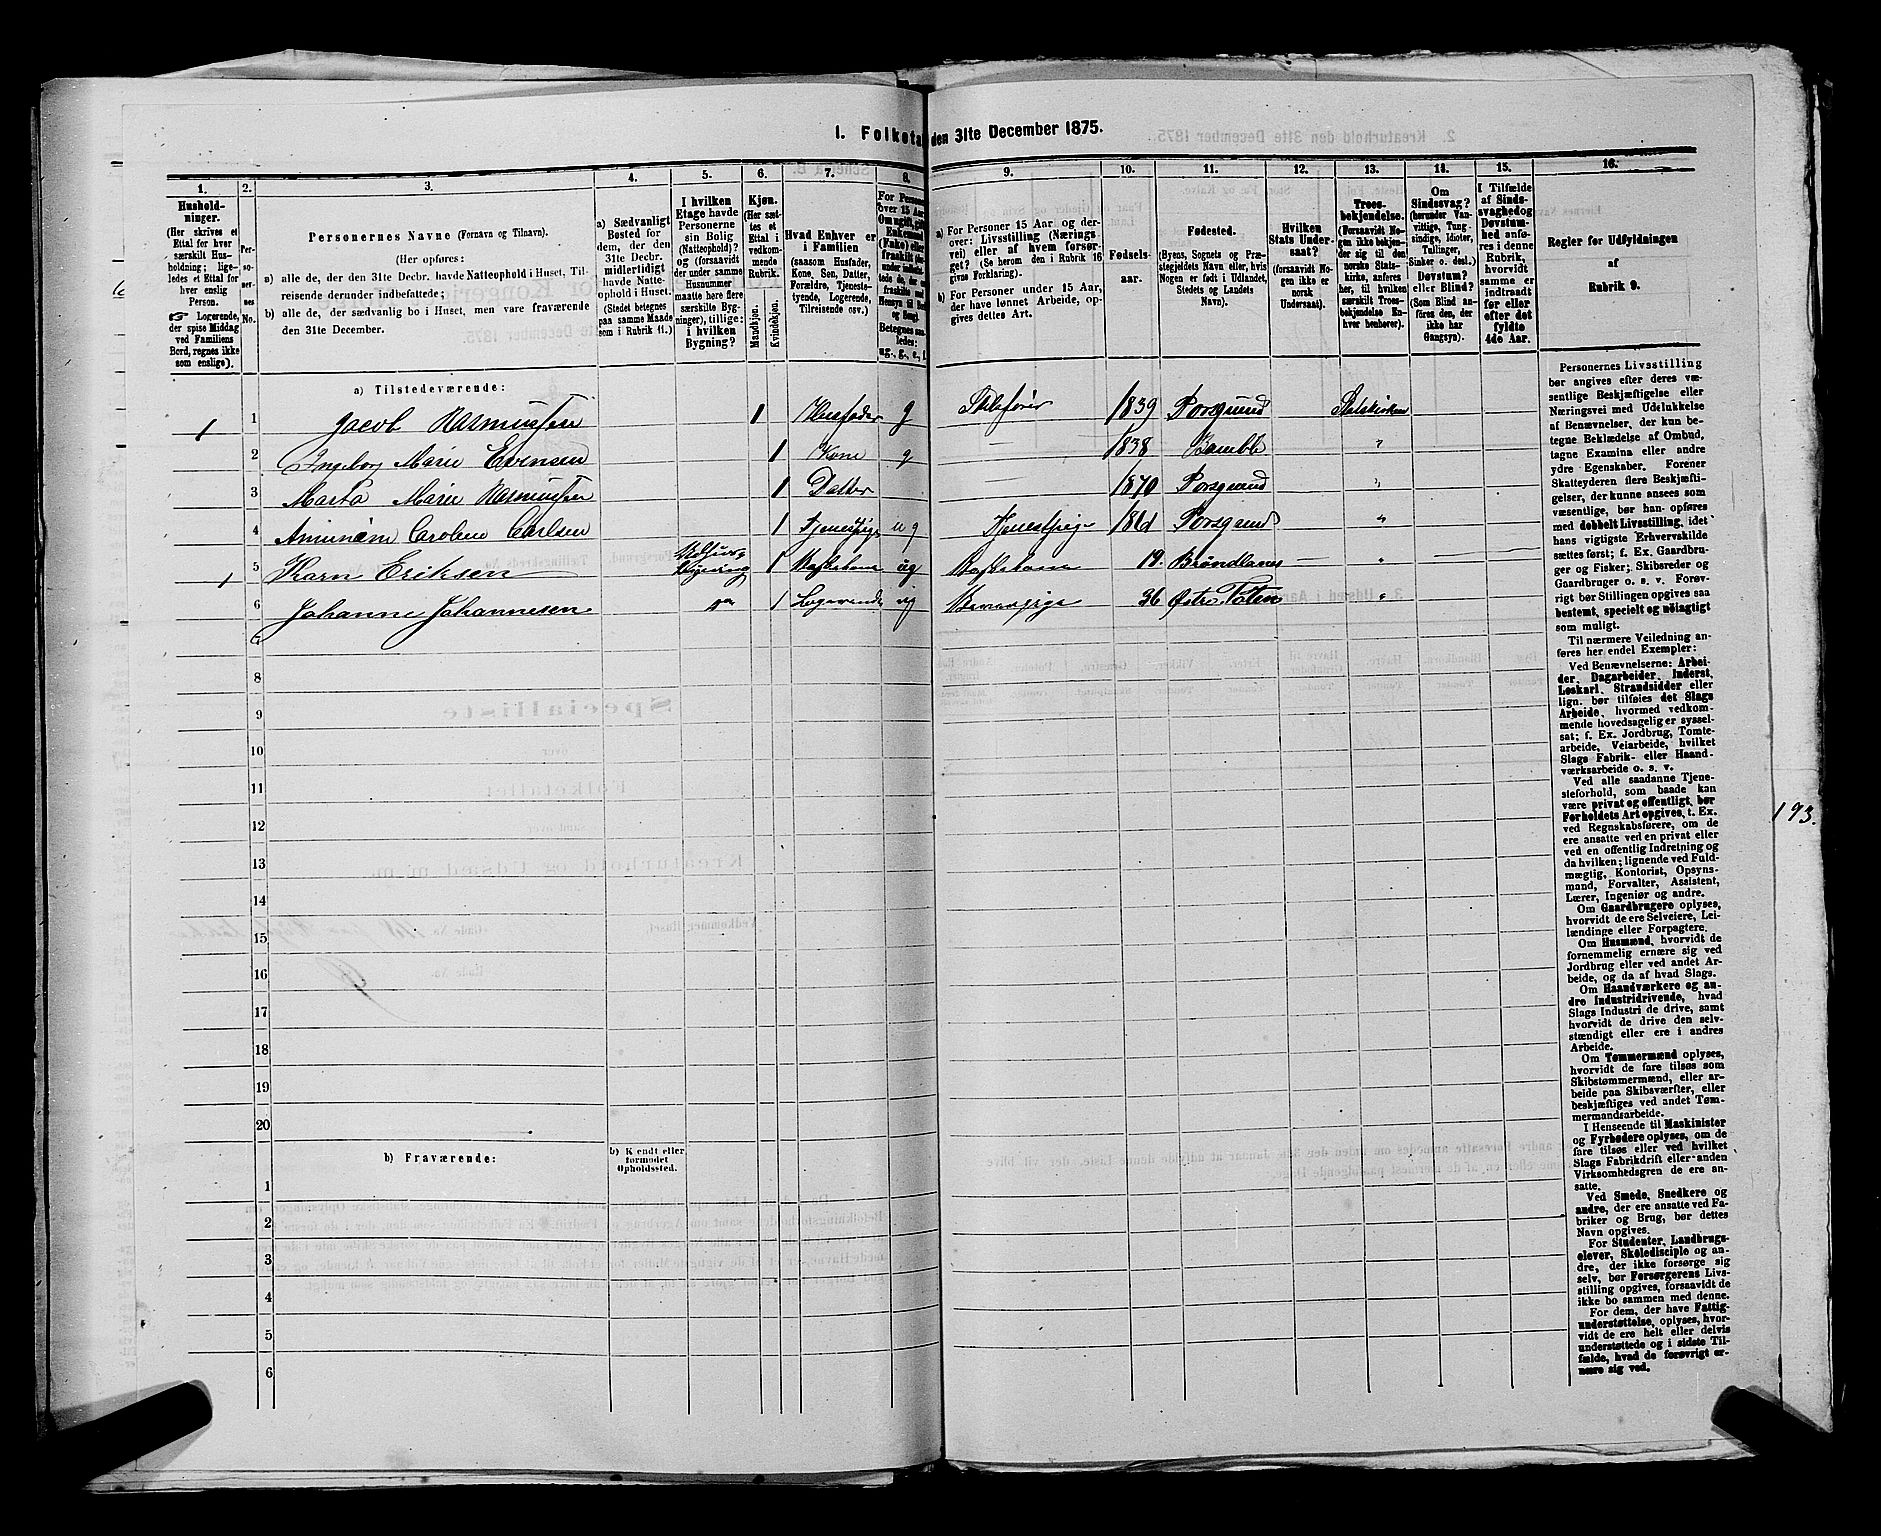 1. Folketal den 31te December 1875.
1.
Hushold-
ninger.
(Her skrives et
Ettal for hver
særskilt Hus-
holdning; lige-
ledes et Ettal for
hver enslig
Person.
Logerende,
der spise Middag
ved Familiens
Bord, regnes ikke
som enslige).
2.
Per-
so-
ner-
nes
No.
3.
Personernes Navne (Fornavn og Tilnavn).
(Her opføres:
a) alle de, der den 31te Decbr. havde Natteophold i Huset, Til-
reisende derunder indbefattede;
b) alle de, der sædvanlig bo i Huset, men vare fraværende
den 31te December.
4.
a) Sædvanligt
Bosted for
dem, der den
31te Decbr.
midlertidigt
havde Natte-
ophold i Huset.
(Stedet betegnes
paa samme Maade
som i Rubrik 11.)
5.
I hvilken
Etage havde
Personerne
sin Bolig
(Natteophold)?
og (forsaavidt
der under samme
Husnummer
maatte høre flere
særskilte Byg-
ninger), tillige:
i hvilken
Bygning?
6.
Kjøn.
(Her sæt-
tes et
Ettal i
vedkom-
mende
Rubrik.
Mandkjøn.
Kvindekjøn.
7.
Hvad Enhver er
i Familien
(saasom Husfader,
Kone, Søn, Datter,
Forældre, Tjeneste-
tyende, Logerende,
Tilreisende osv.)
8.
9.
a) For Personer 15 Aar og der-
over: Livsstilling (Nærings-
vei) eller af hvem forsør-
get? (Se herom den i Rubrik 16
givne Forklaring).
b) For Personer under 15 Aar,
der have lønnet Arbeide, op-
gives dettes Art.
10.
Fødsels-
aar.
11.
Fødested.
(Byens, Sognets og Præ-
stegjeldets Navn eller, hvis
Nogen er født i Udlandet,
Stedets og Landets
Navn).
12.
Hvilken
Stats Under-
saat?
(forsaavidt No-
gen ikke er
norsk
Undersaat).
13.
Troes-
bekjendelse.
(Forsaavidt No-
gen ikke bekjen-
der sig til den
norske Stats-
kirke, anføres
her, til hvilken
særskilt Troes-
bekjendelse En-
hver henhører).
14.
Om
Sindssvag?
(herunder Van-
vittige, Tung-
sindige, Idioter,
Tullinger,
Sinker o. desl.)
Døvstum?
eller Blind?
(Som Blind an-
føres den, der
ikke har
Gangsyn).
15.
I Tilfælde
af Sinds-
svaghed og
Døvstum-
hed, anfø-
res i denne
Rubrik,
hvorvidt
samme er
indtraadt
før eller
efter det
fyldte
4de Aar.
16.
Regler for Udfyldningen
af
Rubrik 9.
a) Tilstedeværende:
1 1 Jacob Rasmussen 1 Husfader g Skibsfører 1839 Porsgrund Statskirken
2 Ingeborg Marie Evensen 1 Kone g 1838 Bamble "
3 Marta Marie Rasmussen 1 Datter 1870 Porsgrund "
4 Caroline Carlsen 1 Tjenestpige ug Tjenestpige Porsgrund "
1 5 Karn Eriksen 1 ug 19. "
6 Johanne Johannesen 1 Logerende ug 36 Østre Toten "
7
8
9
10
11
12
13
14
15
16
17
18
19
20
b) Fraværende:
b) Kjendt eller
formodet
Opholdssted.
1
2
3
4
5
6
Personernes Livsstilling
bør angives efter deres væ-
sentlige Beskjæftigelse eller
Næringsvei med Udelukkelse
af Benævnelser, der kun be-
tegne Beklædelse af Ombud,
tagne Examina eller andre
ydre Egenskaber. Forener
Skatteyderen flere Beskjæfti-
gelser, der kunne ansees som
væsentlige, bør han opføres
med dobbelt Livsstilling, idet
hans vigtigste Erhvervskilde
sættes først; f. Ex. Gaardbru-
ger og Fisker; Skibsreder og
Gaardbruger o. s. v. Forøv-
rigt bør Stillingen opgives saa
bestemt, specielt og nøiagtigt
som muligt.
Til nærmere Veiledning an-
føres her endel Exempler:
Ved Benævnelserne: Arbei-
der, Dagarbeider, Inderst,
Løskarl, Strandsidder eller
lign. bør tilføies det Slags
Arbeide, hvormed vedkom-
mende hovedsagelig er syssel-
sat; f. Ex. Jordbrug, Tomte-
arbeide, Veiarbeide, hvilket
Slags Fabrik- eller Haand-
værksarbeide o. s. v.
Ved alle saadanne Tjene-
steforhold, som baade kan
være privat og offentligt, bør
Forholdets Art opgives, t. Ex.
ved Regnskabsførere, om de
ere ansatte ved en privat eller
ved en offentlig Indretning og
da hvilken; lignende ved Fuld-
mægtig, Kontorist, Opsyns-
mand, Forvalter, Assistent,
Lærer, Ingeniør og andre.
Om Gaardbrugere oplyses,
hvorvidt de ere Selveiere, Lei-
lændinge eller Forpagtere.
Om Husmænd, hvorvidt de
fornemmelig ernære sig ved
Jordbrug eller ved andet Ar-
beide, og da af hvad Slags.
Om Haandværkere og an-
dre Industridrivende, hvad
Slags Industri de drive, samt
hvorvidt de drive den selv-
stændigt eller ere i andres
Arbeide.
Om Tømmermænd oplyses,
hvorvidt de fare tilsøs som
Skibstømmermænd, eller ar-
beide paa Skibsværfter, eller
beskjæftiges ved andet Tøm-
mermandsarbeide.
I Henseende til Maskinister
og Fyrbødere oplyses, om de
fare tilsøs eller ved hvilket
Slags Fabrikdrift eller anden
Virksomhedsgren de ere an-
satte.
Ved Smede, Snedkere og
andre, der ere ansatte ved Fa-
briker og Brug, bør dettes
Navn opgives.
For Studenter, Landbrugs-
elever, Skoledisciple og an-
dre, der ikke forsørge sig
selv, bør Forsørgerens Livs-
stilling opgives, forsaavidt de
ikke bo sammen med denne.
For dem, der have Fattig-
understøttelse, oplyses, hvor-
vidt de ere helt eller delvis
understøttede og i sidste Til-
fælde, hvad de forøvrigt er-
nære sig ved.
193.